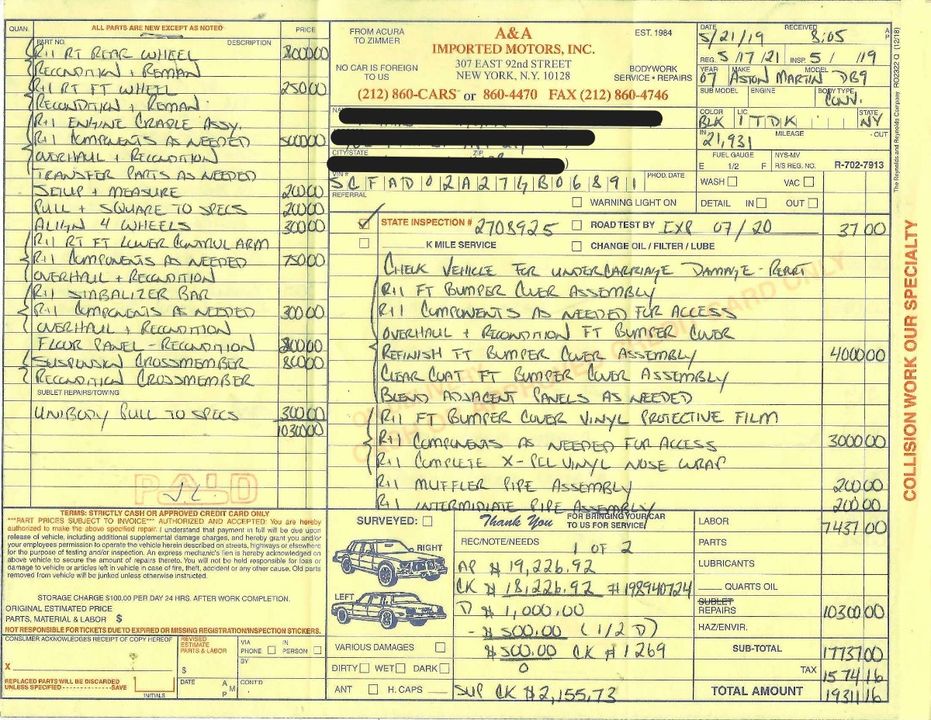 QUAN. ALL PARTS ARE NEW EXCEPT AS NOTED PRICE
PART NO. DESCRIPTION
R+I RT REAR WHEEL 80000
RECONDITION + REMAN
R+I RT FT WHEEL 25000
RECONDITION + REMAN
R+I ENGINE CRADLE ASSY.
R+I COMPONENTS AS NEEDED 500000
OVERHAUL + RECONDITION
TRANSFER PARTS AS NEEDED
SETUP + MEASURE 20000
PULL + SQUARE TO SPECS 20000
ALIGN 4 WHEELS 30000
R+I RT FT LOWER CONTROL ARM
R+I COMPONENTS AS NEEDED 75000
OVERHAUL + RECONDITION
R+I STABALIZER BAR
R+I COMPONENTS AS NEEDED 30000
OVERHAUL + RECONDITION
FLOOR PANEL - RECONDITION
SUSPENSION CROSSMEMBER
RECONDITION CROSSMEMBER
SUBLET REPAIRS/TOWING
UNIBODY PULL TO SPECS 30000
1030000
PAID
FROM ACURA TO ZIMMER
NO CAR IS FOREIGN TO US
A&A
IMPORTED MOTORS, INC.
307 EAST 92nd STREET
NEW YORK, N.Y. 10128
EST. 1984
BODYWORK
SERVICE • REPAIRS
(212) 860-CARS or 860-4470 FAX (212) 860-4746
CITY/STATE ZIP
VIN # SCFAD02A27GB06891 PROD. DATE
REFERRAL
WARNING LIGHT ON
DATE 5/21/19 RECEIVED 8:05 A P
REG. 5/17/21 INSP. 5/ /19
YEAR 07 MAKE ASTON MARTIN MODEL DB9
SUB MODEL ENGINE BODY TYPE CONV.
COLOR BLK LIC 1TDK STATE NY
IN 21,931 MILEAGE - OUT
FUEL GAUGE NYS-MV
E 1/2 F R/S REG. NO. R-702-7913
WASH VAC
DETAIL IN OUT
The Reynolds and Reynolds Company RO2282 Q (12/18)
COLLISION WORK OUR SPECIALTY
STATE INSPECTION # 2708925 ROAD TEST BY EXP 07/20 3700
K MILE SERVICE CHANGE OIL / FILTER / LUBE
CHECK VEHICLE FOR UNDERCARRIAGE DAMAGE - REPORT
R+I FT BUMPER COVER ASSEMBLY
R+I COMPONENTS AS NEEDED FOR ACCESS
OVERHAUL + RECONDITION FT BUMPER COVER
REFINISH FT BUMPER COVER ASSEMBLY 400000
CLEAR COAT FT BUMPER COVER ASSEMBLY
BLEND ADJACENT PANELS AS NEEDED
R+I FT BUMPER COVER VINYL PROTECTIVE FILM
R+I COMPONENTS AS NEEDED FOR ACCESS 300000
R+I COMPLETE X-PEL VINYL NOSE WRAP
R+I MUFFLER PIPE ASSEMBLY 20000
R+I INTERMEDIATE PIPE ASSEMBLY 20000
TERMS: STRICTLY CASH OR APPROVED CREDIT CARD ONLY
***PART PRICES SUBJECT TO INVOICE*** AUTHORIZED AND ACCEPTED: You are hereby
authorized to make the above specified repair. I understand that payment in full will be due upon
release of vehicle, including additional supplemental damage charges, and hereby grant you and/or
your employees permission to operate the vehicle herein described on streets, highways or elsewhere
for the purpose of testing and/or inspection. An express mechanic's lien is hereby acknowledged on
above vehicle to secure the amount of repairs thereto. You will not be held responsible for loss or
damage to vehicle or articles left in vehicle in case of fire, theft, accident or any other cause. Old parts
removed from vehicle will be junked unless otherwise instructed.
STORAGE CHARGE $100.00 PER DAY 24 HRS. AFTER WORK COMPLETION.
ORIGINAL ESTIMATED PRICE
PARTS, MATERIAL & LABOR $
NOT RESPONSIBLE FOR TICKETS DUE TO EXPIRED OR MISSING REGISTRATION/INSPECTION STICKERS.
CONSUMER ACKNOWLEDGES RECEIPT OF COPY HEREOF
X
REPLACED PARTS WILL BE DISCARDED
UNLESS SPECIFIED SAVE
INITIALS
REVISED ESTIMATE PARTS & LABOR
$
DATE A P M
VIA PHONE IN PERSON
BY
CONT'D.
SURVEYED:
RIGHT
LEFT
VARIOUS DAMAGES
DIRTY WET DARK
ANT H. CAPS
Thank You FOR BRINGING YOUR CAR TO US FOR SERVICE
REC/NOTE/NEEDS 1 OF 2
AP $19,226.92
CK $18,226.92 #198940724
D $1,000.00
- $500.00 (1/2 D)
$500.00 CK #1269
0
SUP CK $2,155.73
LABOR 743700
PARTS
LUBRICANTS
QUARTS OIL
SUBLET REPAIRS 1030000
HAZ/ENVIR.
SUB-TOTAL 1773700
TAX 157416
TOTAL AMOUNT 1931116